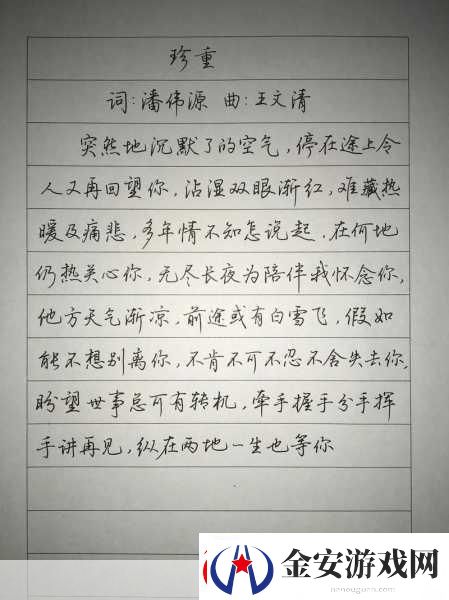 珍重
词:潘伟源 曲:王文清
突然地沉默了的空气,停在途上令
人又再回望你,沾湿双眼渐红,难藏热
暖及痛悲,多年情不知怎说起,在何地
仍热关心你,无尽长夜为陪伴我怀念你,
他方天气渐凉,前途或有白雪飞,假如
能不想别离你,不肯不可不忍不舍失去你,
盼望世事总可有转机,牵手握手分手挥
手讲再见,纵在两地一生也等你
金安游戏网